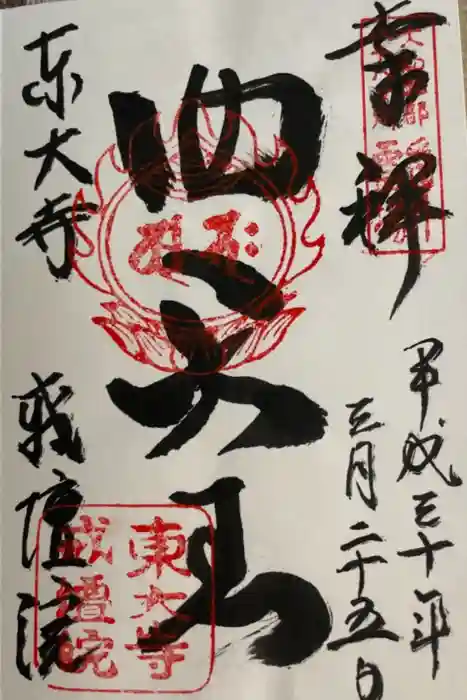 奉拝
平成三十年
三月二十五日
四天王
東大寺
戒壇院
東大寺
戒壇院